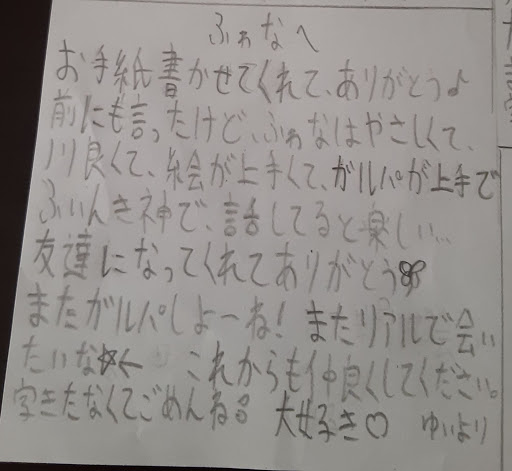 ふぁなへ
お手紙書かせてくれて、ありがとう♪
前にも言ったけど、ふぁなはやさしくて、
ノリ良くて、絵が上手くて、ガルパが上手で
ふいんき神で、話してると楽しい…
友達になってくれてありがとう
またガルパしよーね! またリアルで会い
たいな☆ これからも仲良くしてください。
字きたなくてごめんね 大好き♡ ゆいより